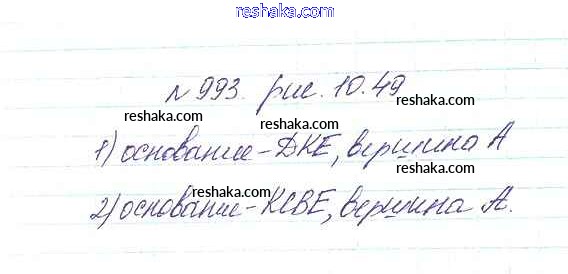 reshaka.com
№ 993. рис. 10.49
reshaka.com
reshaka.com
reshaka.com
1) основание - ДКЕ, вершина А
reshaka.com
reshaka.com
2) основание - КСВЕ, вершина А.